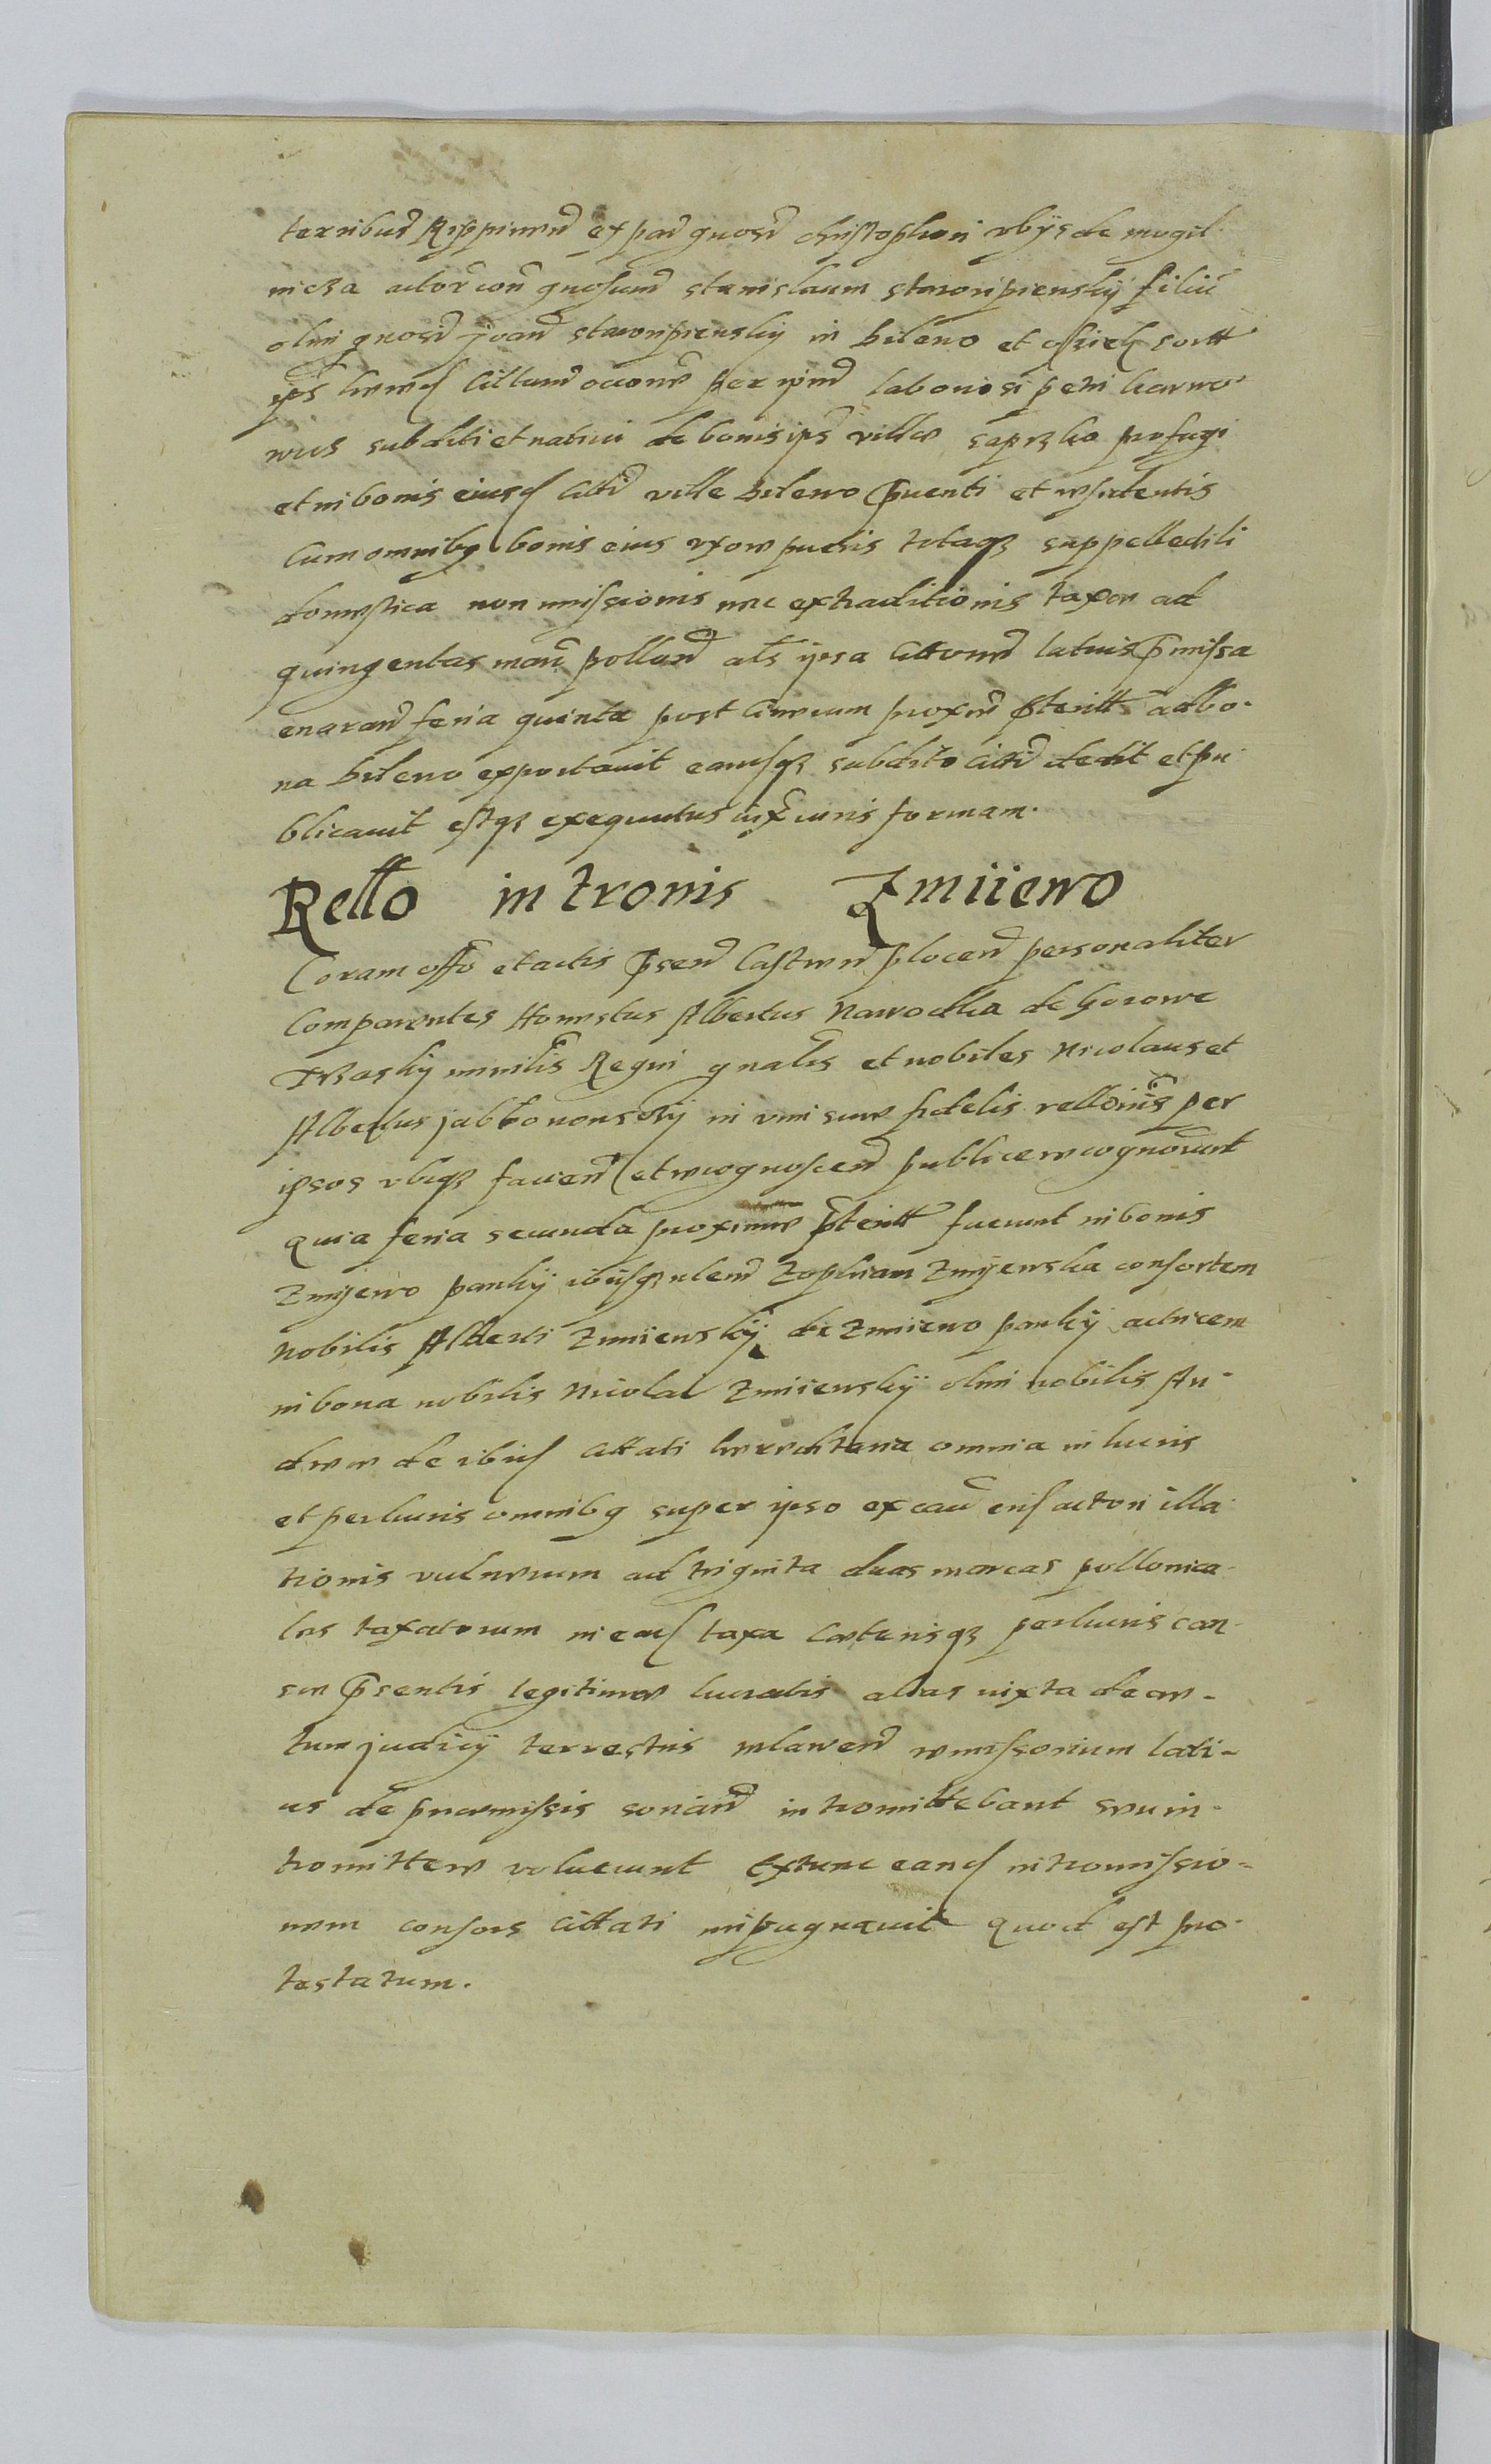 terribus Rippinen ex par gnosi christophori vbijs de mogil
nicza actor con gnosum stanislaum staroripienskij filiu
olim gnosi joan staroripienskij in bileno et sortt
ips hered cittum occone per ipm laboriosi petri karwo
wus subditi et nativi de bonis ips ville saprzko profugi
et in bonis eiusd citti ville bileno pventi et residentis
cum omnibq bonis eius vxore pueris totaqz suppelledili
domestica non missionis nec extraditionis taxon ad
quingentas marc pollon als ipsa citt latius pmissa
enaran feria quinta post cinerum proxim pteritt ad bo-
na bileno exportavit eamqz subdito citti dedit et pu
blicavit estqz exequutus iux iuris formam.
Rello intronis Zmiiewo
Coram offo et actis psen Castren plocen personaliter
Comparentes Honestus Albertus Nawodka de Gorowe
Trzaskij minilis Regni gnalis et nobiles Nicolaus et
Albertus jablonowsczij in vim sue fidelis rellonis per
ipsos vbiqz facien et recognoscen publice recognoverunt
quia feria secunda proxime pteritt fuerunt in bonis
Zmijewo pankij ibisqz volen Zophiam Zmijewska consortem
Nobilis Alberti Zmiiewskij de Zmiiewo pankij actricem
in bona nobilis Nicolai Zmiiewskij olim nobilis An-
dree de ibid cittati hereditaria omnia in lucris
et perlucris omnibq super ipso ex cau eius actori illa
tionis vulnerum ad triginta duas marcas pollonica-
les taxatorum in ead taxa ceterisqz perlucris cau-
se psentis legitime lucratis alias iuxta decre-
tum judicij terrestris mlawen remissorium lati-
us de premissis sonan intromittebant seu in-
tromittere voluerunt Extunc eand intromissio-
nem consors cittati inpugnavit quod est pro-
testatum.